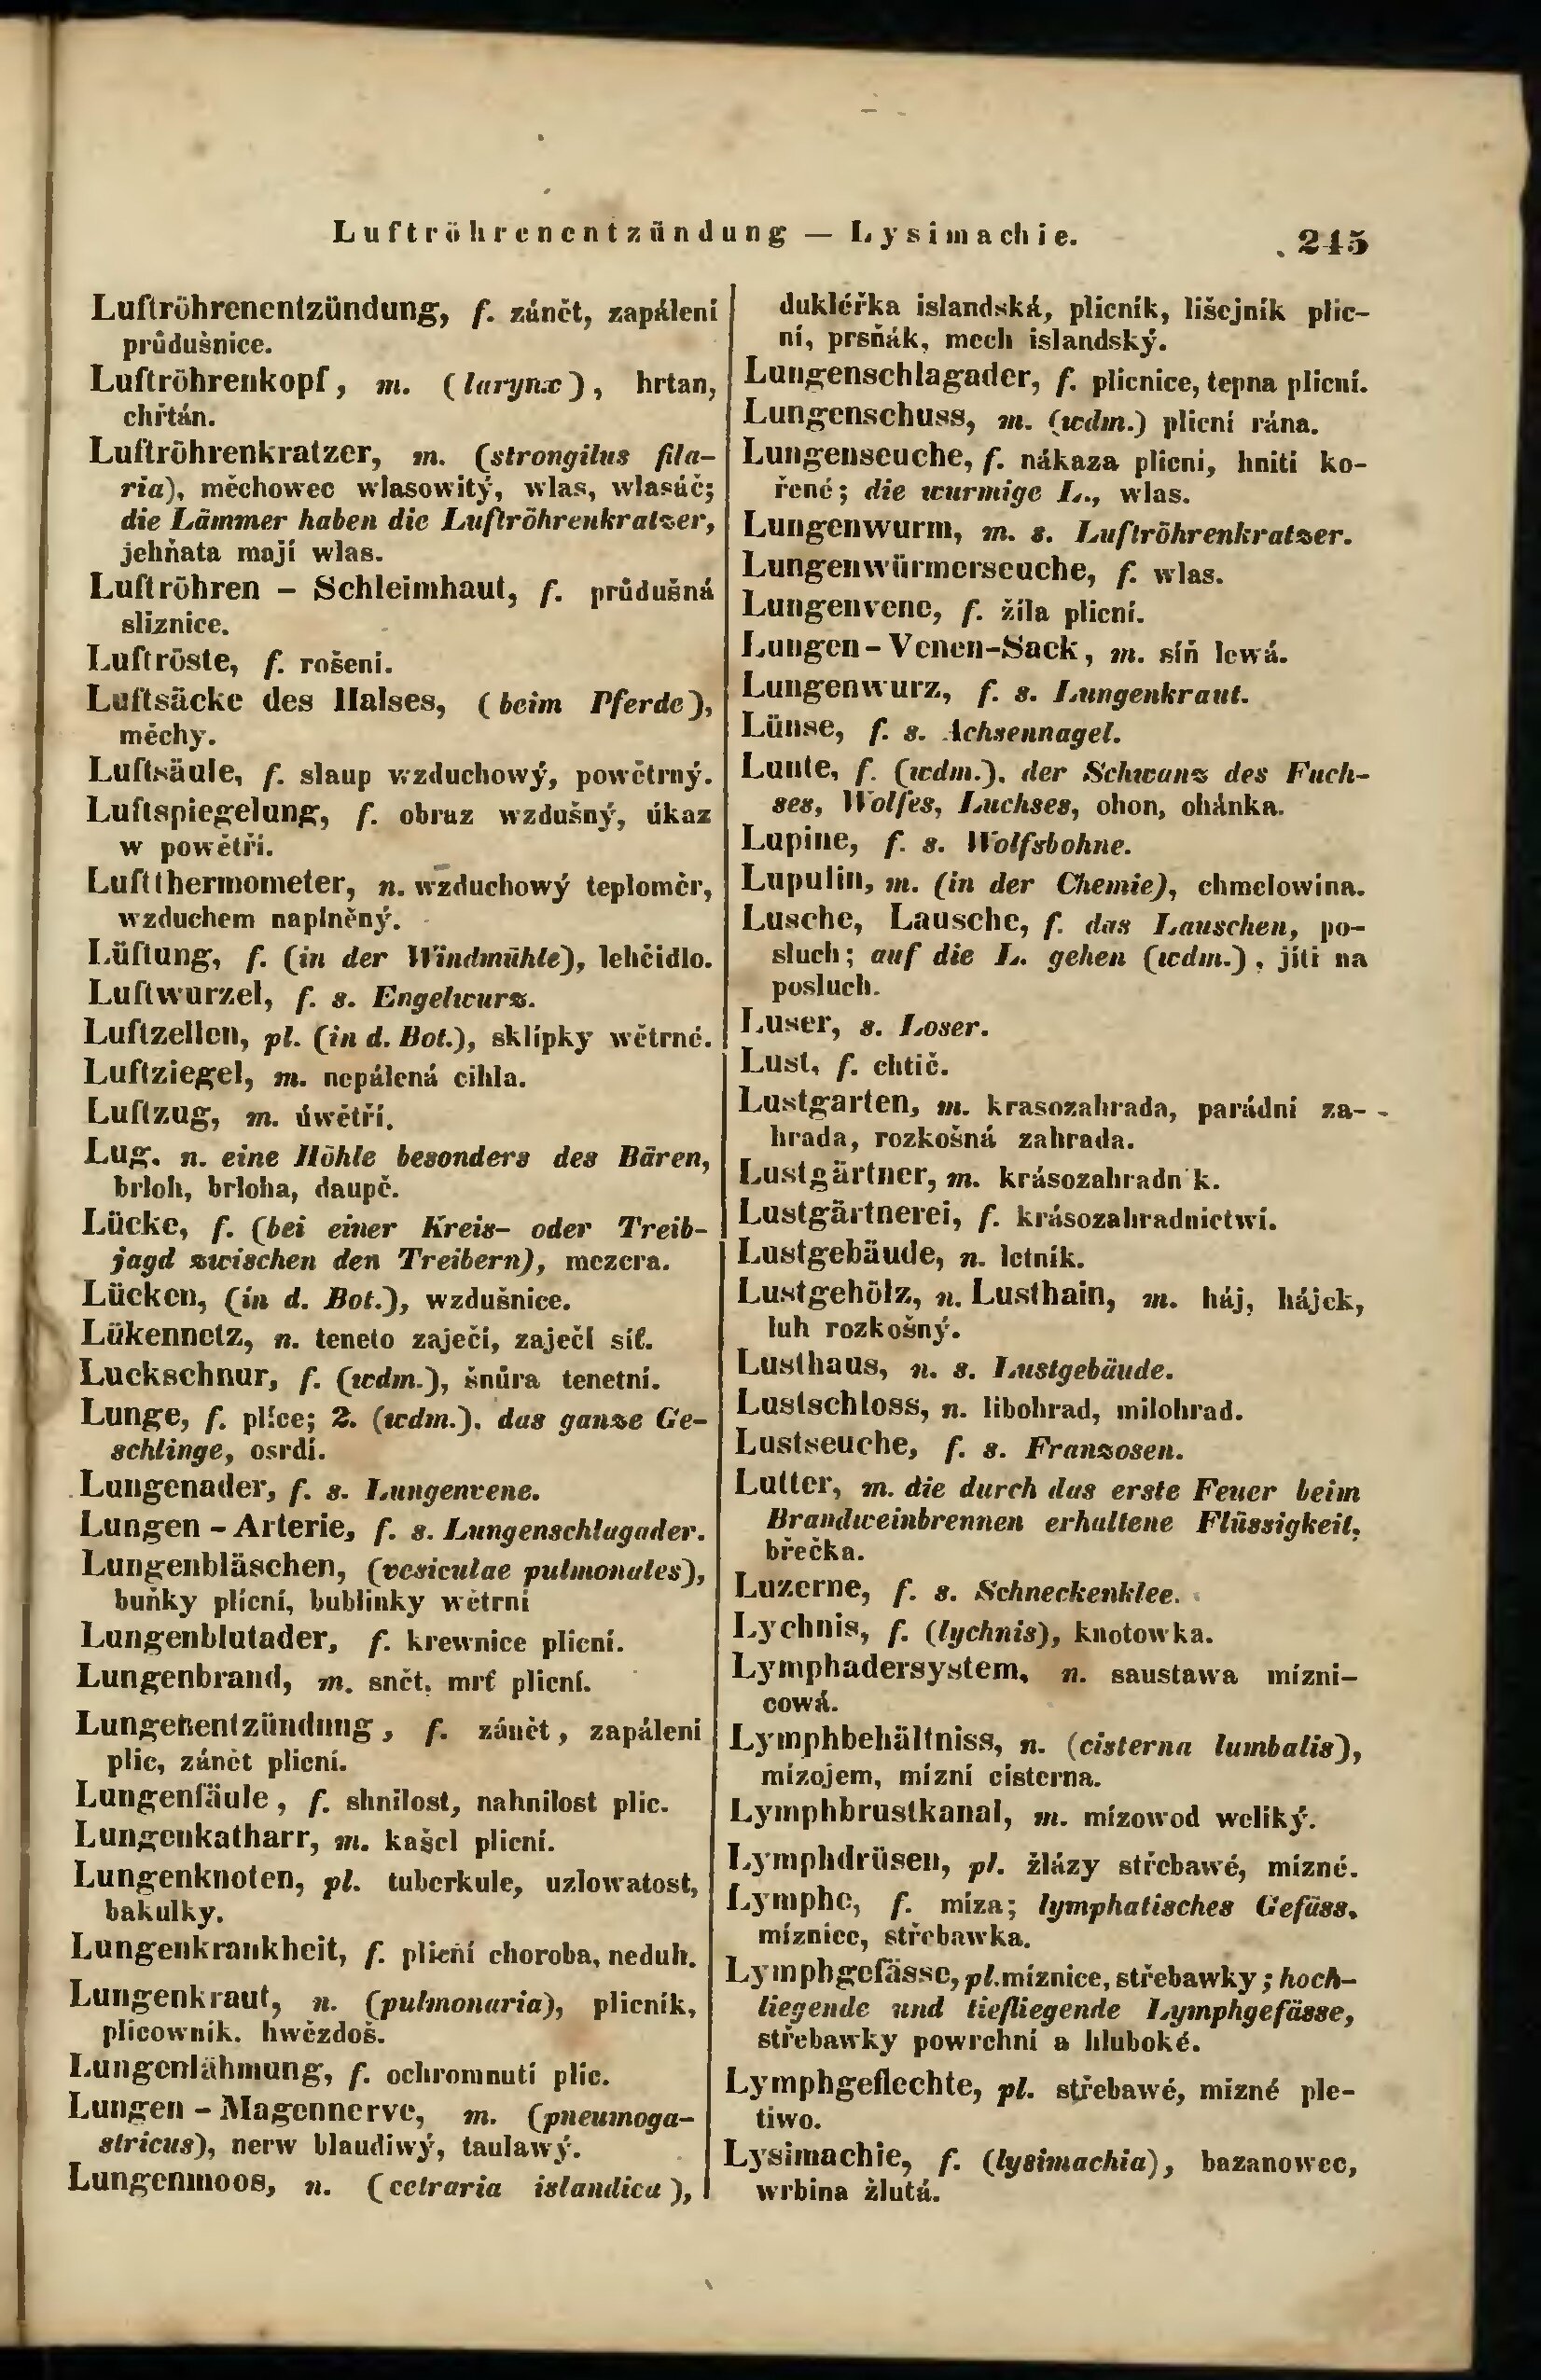 Luftröhrenentzündung — Lysimachie. 245
Luftröhrenentzündung, f. zánět, zapálení
průdušnice.
Luftröhrenkopf, m. (larynx), hrtan,
chřtán.
Luftröhrenkratzer, m. (strongilus fila-
ria), měchowec wlasowitý, wlas, wlasáč;
die Lämmer haben die Luftröhrenkratzer,
jehňata mají wlas.
Luftröhren - Schleimhaut, f. průdušná
sliznice.
Luftröste, f. rošení.
Luftsäcke des Halses, (beim Pferde),
měchy.
Luftsäule, f. slaup wzduchowý, powětrný.
Luftspiegelung, f. obraz wzdušný, úkaz
w powětří.
Luftthermometer, n. wzduchowý teploměr,
wzduchem naplněný.
Lüftung, f. (in der Windmühle), lehčidlo.
Luftwurzel, f. s. Engelwurz.
Luftzellen, pl. (in d. Bot.), sklípky wětrné.
Luftziegel, m. nepálená cihla.
Luftzug, m. úwětří.
Lug, n. eine Höhle besonders des Bären,
brloh, brloha, daupě.
Lücke, f. (bei einer Kreis- oder Treib-
jagd zwischen den Treibern), mezera.
Lücken, (in d. Bot.), wzdušnice.
Lükennetz, n. teneto zaječí, zaječí síť.
Luckschnur, f. (wdm.), šnůra tenetní.
Lunge, f. plíce; 2. (wdm.), das ganze Ge-
schlinge, osrdí.
Lungenader, f. s. Lungenvene.
Lungen - Arterie, f. s. Lungenschlagader.
Lungenbläschen, (vesiculae pulmonales),
buňky plícní, bublinky wětrní
Lungenblutader, f. krewnice plicní.
Lungenbrand, m. snět, mrť plicní.
Lungenentzündung, f. zánět, zapálení
plic, zánět plicní.
Lungenfäule, f. shnilost, nahnilost plic.
Lungenkatharr, m. kašel plicní.
Lungenknoten, pl. tuberkule, uzlowatost,
bakulky.
Lungenkrankheit, f. plicní choroba, neduh.
Lungenkraut, n. (pulmonaria), plicník,
plicowník, hwězdoš.
Lungenlähmung, f. ochromnutí plic.
Lungen - Magennerve, m. (pneumoga-
stricus), nerw blaudiwý, taulawý.
Lungenmoos, n. (cetraria islandica),
dukléřka islandská, plicník, lišejník plic-
ní, prsňák, mech islandský.
Lungenschlagader, f. plicnice, tepna plicní.
Lungenschuss, m. (wdm.) plicní rána.
Lungenseuche, f. nákaza plicní, hnití ko-
řené; die wurmige L., wlas.
Lungenwurm, m. s. Luftröhrenkratzer.
Lungenwürmerseuche, f. wlas.
Lungenvene, f. žíla plicní.
Lungen-Venen-Sack, m. síň lewá.
Lungenwurz, f. s. Lungenkraut.
Lünse, f. s. Achsennagel.
Lunte, f. (wdm.), der Schwanz des Fuch-
ses, Wolfes, Luchses, ohon, ohánka.
Lupine, f. s. Wolfsbohne.
Lupulin, m. (in der Chemie), chmelowina.
Lusche, Lausche, f. das Lauschen, po-
sluch; auf die L. gehen (wdm.), jíti na
posluch.
Luser, s. Loser.
Lust, f. chtič.
Lustgarten, m. krasozahrada, parádní za-
hrada, rozkošná zahrada.
Lustgärtner, m. krásozahradn k.
Lustgärtnerei, f. krásozahradnictwí.
Lustgebäude, n. letník.
Lustgehölz, n. Lusthain, m. háj, hájek,
luh rozkošný.
Lusthaus, n. s. Lustgebäude.
Lustschloss, n. libohrad, milohrad.
Lustseuche, f. s. Franzosen.
Lutter, m. die durch das erste Feuer beim
Brandweinbrennen erhaltene Flüssigkeit,
břečka.
Luzerne, f. s. Schneckenklee.
Lychnis, f. (lychnis), knotowka.
Lymphadersystem, n. saustawa mízni-
cowá.
Lymphbehältniss, n. (cisterna lumbalis),
mízojem, mízní cisterna.
Lymphbrustkanal, m. mízowod weliký.
Lymphdrüsen, pl. žlázy střebawé, mízné.
Lymphe, f. míza; lymphatisches Gefäss,
míznice, střebawka.
Lymphgefässe, pl. míznice, střebawky; hoch-
liegende und tiefliegende Lymphgefässe,
střebawky powrchní a hluboké.
Lymphgeflechte, pl. střebawé, mízné ple-
tiwo.
Lysimachie, f. (lysimachia), bazanowec,
wrbina žlutá.